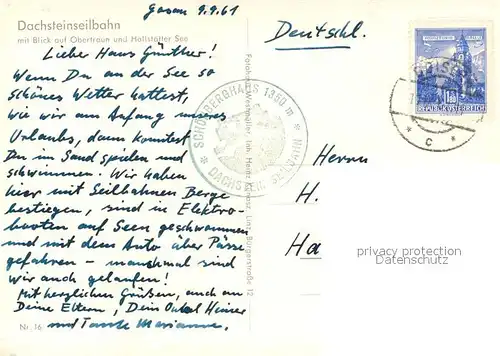 Dachsteinseilbahn
mit Blick auf Obertraun und Hallstätter See
Gosau 9.9.61
Lieber Hans Günther!
Wenn Du an der See so
schönes Wetter hattest,
wie wir am Anfang unseres
Urlaubs, dann konntest
Du im Sand spielen und
schwimmen. Wir haben
hier mit Seilbahnen Berge
bestiegen, sind in Elektro-
booten auf Seen geschwommen
und mit dem Auto über Pässe
gefahren – manchmal sind
wir auch gelaufen!
Mit herzlichen Grüßen, auch an
Deine Eltern, Dein Onkel Heiner
und Tante Marianne.
Nr. 16
SCHÖNBERGHAUS 1350 m
DACHSTEIN
Linz, Bürgerstraße 12
Deutschl.
REPUBLIK ÖSTERREICH
C
Herrn
H.
Ha
privacy protection
Datenschutz